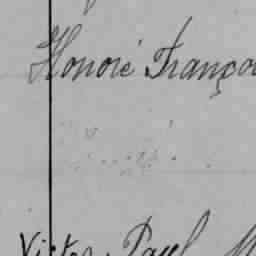 Honoré Franço
Victor Paul